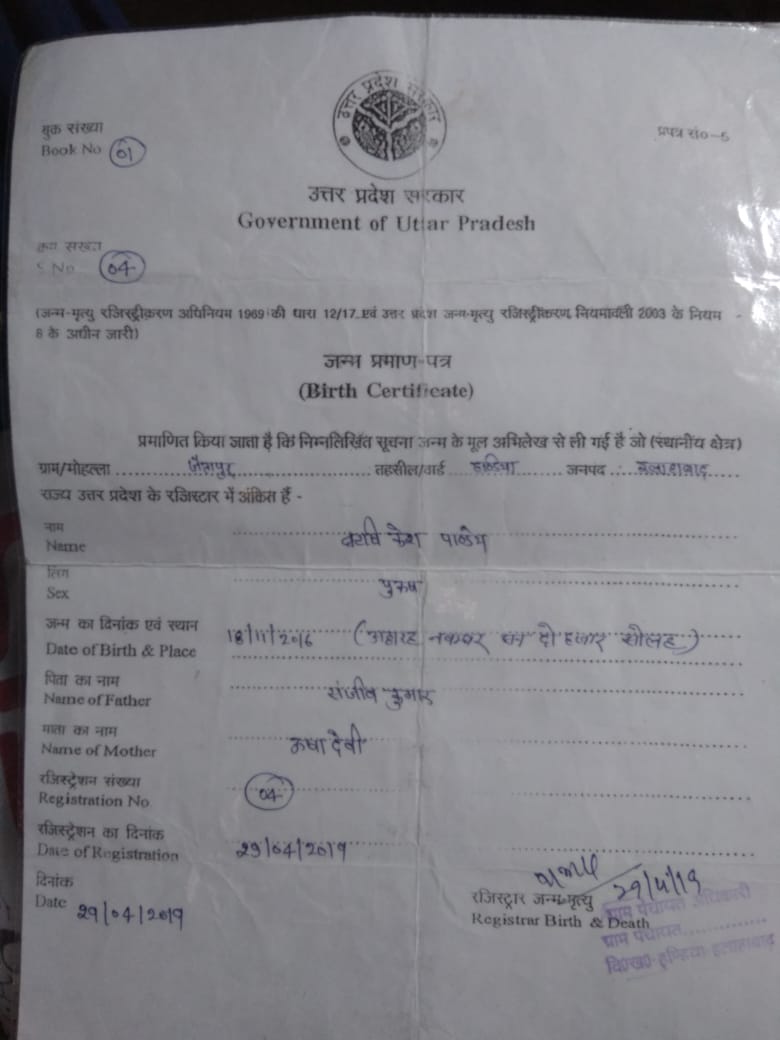 उत्तर प्रदेश सरकार
बुक संख्या
Book No 01
प्रपत्र सं०-5
उत्तर प्रदेश सरकार
Government of Uttar Pradesh
क्रम संख्या
S No 04
(जन्म-मृत्यु रजिस्ट्रीकरण अधिनियम 1969 की धारा 12/17 एवं उत्तर प्रदेश जन्म-मृत्यु रजिस्ट्रीकरण नियमावली 2003 के नियम -
8 के अधीन जारी)
जन्म प्रमाण-पत्र
(Birth Certificate)
प्रमाणित किया जाता है कि निम्नलिखित सूचना जन्म के मूल अभिलेख से ली गई है जो (स्थानीय क्षेत्र)
ग्राम/मोहल्ला तहसील/वार्ड हण्डिया जनपद इलाहाबाद
राज्य उत्तर प्रदेश के रजिस्टार में अंकित हैं -
नाम
Name केश पाण्डेय
लिंग
Sex पुरुष
जन्म का दिनांक एवं स्थान
Date of Birth & Place 18/11/2016 (अठारह नवम्बर सन दो हजार सोलह)
पिता का नाम
Name of Father संजीव कुमार
माता का नाम
Name of Mother ऊषा देवी
रजिस्ट्रेशन संख्या
Registration No 04
रजिस्ट्रेशन का दिनांक
Date of Registration 29/04/2019
दिनांक
Date 29/04/2019
29/4/19
रजिस्ट्रार जन्म-मृत्यु
Registrar Birth & Death
ग्राम पंचायत अधिकारी
ग्राम पंचायत
वि०ख० हण्डिया इलाहाबाद